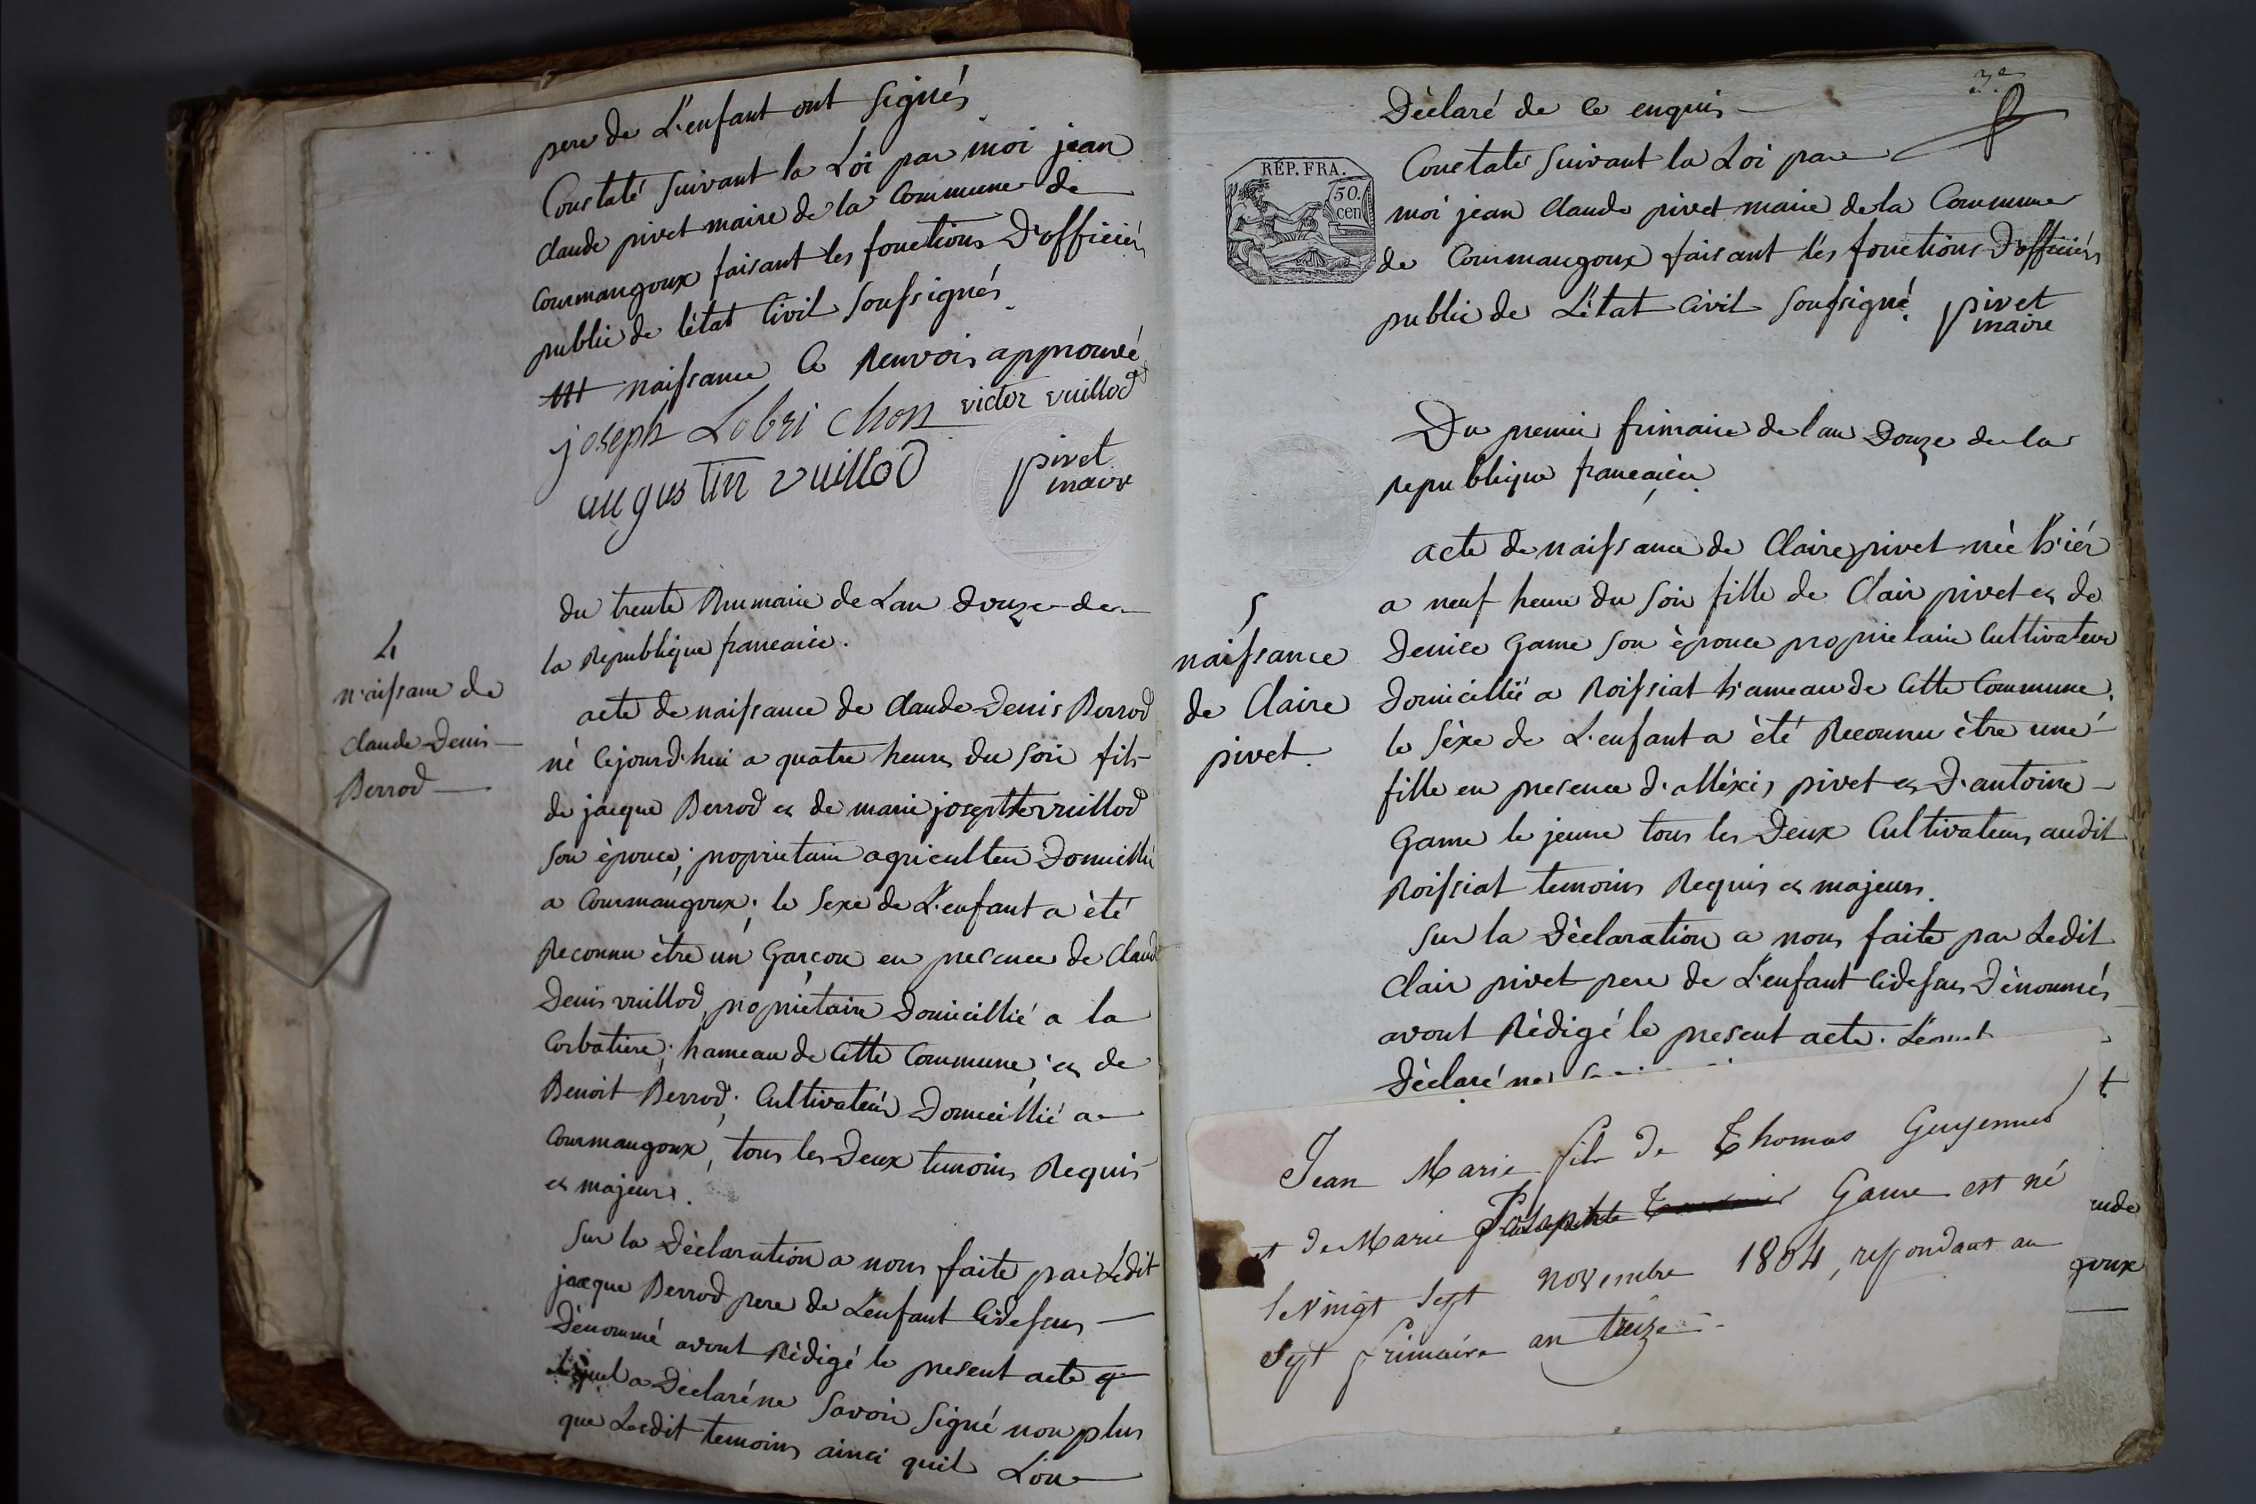 pere de L'enfant ont signés
Constaté suivant la Loi par moi jean
claude pivet maire de la Commune de
Courmangoux faisant les fonctions D'officiér
public de l'état Civil soussignés.
naissance Ce Renvois approuvé
joseph Lobri chon victor vuillod
augustin vuillod
pivet
maire
4
naissance de
claude Denis
Berrod
du trente Brumaire de Lan douze de
la Republique francaise.
acte de naissance de claude Denis Berrod
né Cejourd'hui a quatre heures du soir fils
de jacque Berrod et de marie josephte vuillod
son épouce; proprietaire agriculteur Domicillié
a Courmangoux; le sexe de L'enfant a été
Reconnu être un Garçon en presence de Claude
Denis vuillod, propriétaire Domicillié a la
Corbatiere; hameau de Cette Commune; et de
Benoit Berrod; Cultivateur Domicillié a
Courmangoux, tous les Deux temoins Requis
et majeurs.
Sur la Déclaration a nous faite par Ledit
jacque Berrod pere de L'enfant Cidessus
Dénommé avont Rédigé le present acte
lequel a Déclaré ne savoir signé non plus
que Lesdit temoins ainci quil L'on
3e
Déclaré de ce enquis
Constaté suivant la Loi par
RÉP. FRA.
50.
cen
moi jean claude pivet maire de la Commune
de Courmangoux faisant lés fonctions D'officiérs
public de L'état Civil soussigné. pivet
maire
Du premier frimaire de lan Douze de la
republique francaise.
5
naissance
de Claire
pivet.
acte de naissance de Claire pivet née hiér
a neuf heure du soir fille de Clair pivet et de
Denice Game son épouce proprietaire Cultivateur
Domicillié a Roissiat hameau de Cette Commune.
le séxe de L'enfant a été Reconnu être une
fille en presence d'alléxis pivet et D'antoine
Game le jeune tous les Deux Cultivateurs audit
Roissiat temoins Requis et majeurs.
Sur la Déclaration a nous faite par Ledit
Clair pivet pere de L'enfant Cidessus Dénommés
avont Rédigé le present acte.
Déclaré ne
t
Jean Marie fils de Thomas Guyennet
et de Marie Josephte Game est né
le Vingt Sept novembre 1804, respondant au
Sept frimaire an treize
goux